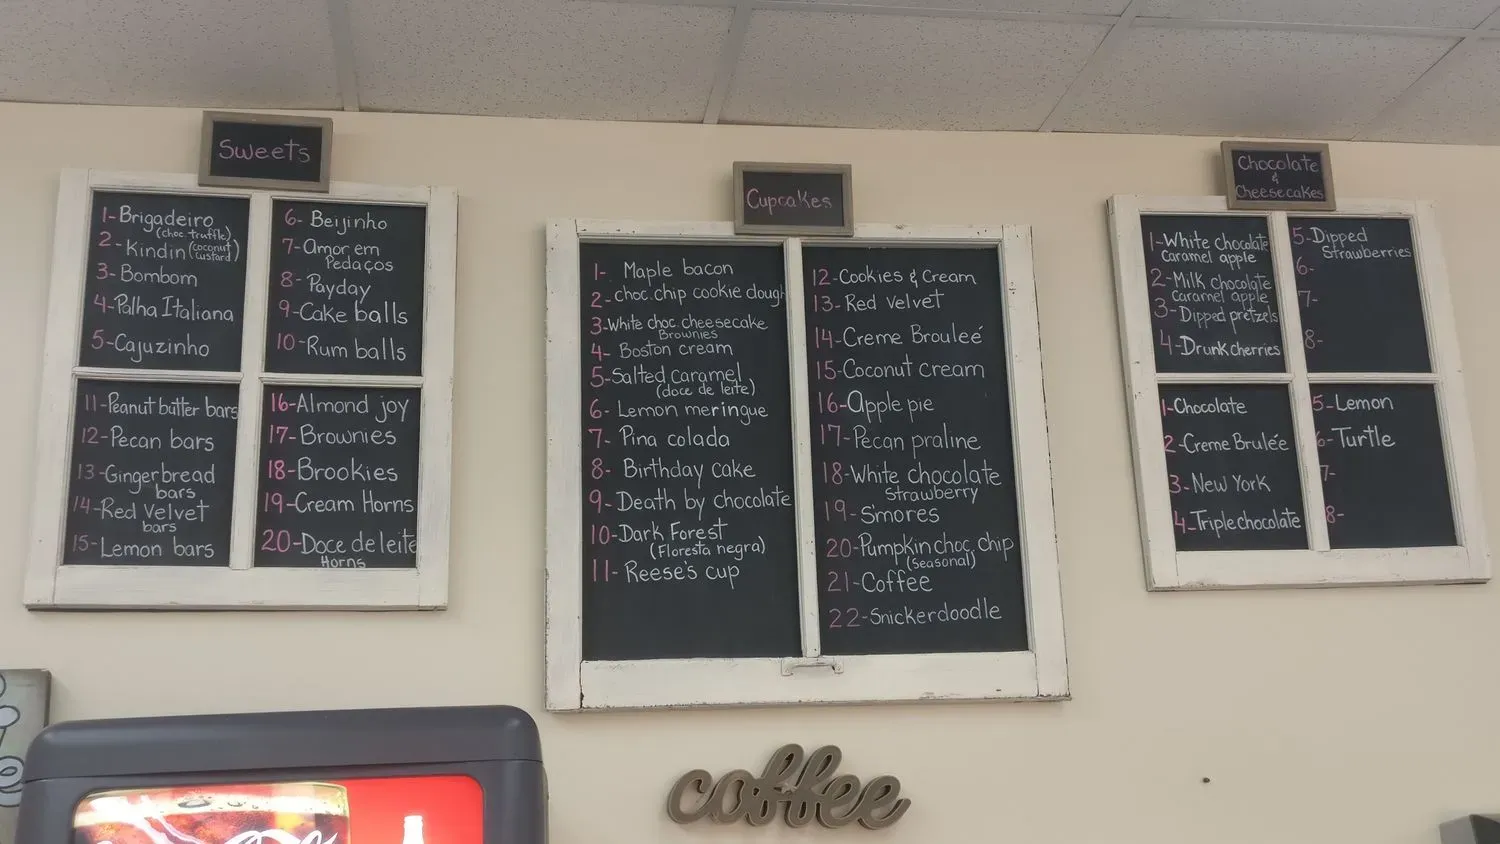 Sweets
1- Brigadeiro
(choc. truffle)
2- Kindin (coconut custard)
3- Bombom
4- Palha Italiana
5- Cajuzinho
6- Beijinho
7- Amor em
Pedaços
8- Payday
9- Cake balls
10- Rum balls
11- Peanut butter bars
12- Pecan bars
13- Gingerbread
bars
14- Red Velvet
bars
15- Lemon bars
16- Almond joy
17- Brownies
18- Brookies
19- Cream Horns
20- Doce de leite
Horns
Cupcakes
1- Maple bacon
2- choc. chip cookie dough
3- White choc. cheesecake
Brownies
4- Boston cream
5- Salted caramel
(doce de leite)
6- Lemon meringue
7- Pina colada
8- Birthday cake
9- Death by chocolate
10- Dark Forest
(Floresta negra)
11- Reese's cup
12- Cookies & Cream
13- Red Velvet
14- Creme Brouleé
15- Coconut cream
16- Apple pie
17- Pecan praline
18- White chocolate
Strawberry
19- S'mores
20- Pumpkin choc. chip
(seasonal)
21- Coffee
22- Snickerdoodle
Chocolate
&
Cheesecakes
1- White chocolate
Caramel apple
2- Milk chocolate
Caramel apple
3- Dipped pretzels
4- Drunk cherries
5- Dipped
Strawberries
6-
7-
8-
1- Chocolate
2- Creme Brulée
3- New York
4- Triple chocolate
5- Lemon
6- Turtle
7-
8-
coffee